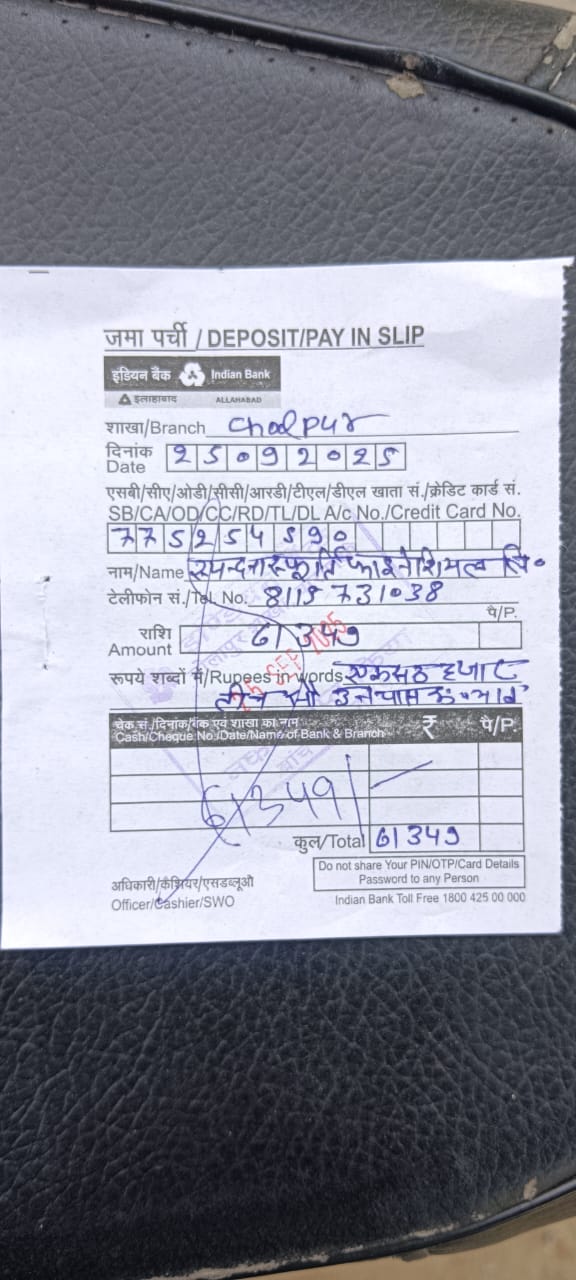 जमा पर्ची / DEPOSIT/PAY IN SLIP
इंडियन बैंक Indian Bank
इलाहाबाद ALLAHABAD
शाखा/Branch Cholpur
दिनांक
Date 25092025
एसबी/सीए/ओडी/सीसी/आरडी/टीएल/डीएल खाता सं./क्रेडिट कार्ड सं.
SB/CA/OD/CC/RD/TL/DL A/c No./Credit Card No.
775254590
नाम/Name स्पन्दना स्फूर्ति फाइनेंशियल लि०
टेलीफोन सं./Tel. No. 8115731038
पै/P.
राशि
Amount 61349
रूपये शब्दों में/Rupees in words एकसठ हजार
तीन सौ उनचास रू०
SEP 2025
चेक सं./दिनांक/बैंक एवं शाखा का नाम ₹ पै/P.
Cash/Cheque No./Date/Name of Bank & Branch
61349/
कुल/Total 61349
Do not share Your PIN/OTP/Card Details
Password to any Person
अधिकारी/कैशियर/एसडब्लूओ
Officer/Cashier/SWO
Indian Bank Toll Free 1800 425 00 000